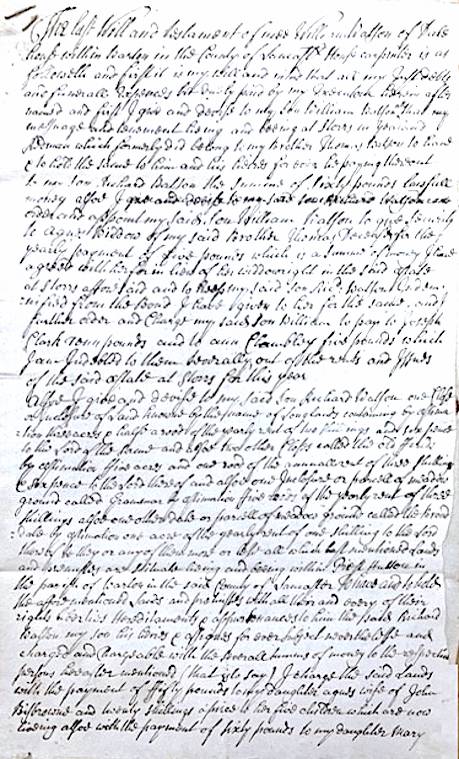 The last Will and testament of mee Willm Watson of Dale
house within Warton in the County of Lancastr House carpenter is as
followeth and first it is my will and mind that all my Just debts
and funerall expences bee duely paid by my Executors herein after
named and first I give and devise to my Son William Watson that my
messuage and tenement lieing and being at Storrs in Yealand
Redman which formerly did belong to my Brother Thomas Watson to have
& to hold the same to him and his heires for ever he paying thereout
to my Son Richard Watson the summe of sixty pounds lawfull
money alsoe I give and devise to my said son Richard Watson
order and appoint my said Son William Watson to give security
to Agnes Widdow of my said Brother Thomas Deceased for the
yearly payment of five pounds which is a summe of money I have
agreed with her for in lieu of her widdowright in the said estate
at Storrs afforesaid and to keep my said Son Richd Watson indem-
nified from the bond I have given to her for the same, and I
further order and Charge my said Son William to pay to Joseph
Clark Tenn pounds and to Ann five pounds which
I am Indebted to them severally out of the rents and Issues
of the said estate at Storrs for this year
Alsoe I give and devise to my said Son Richard Watson one Close
or Inclosure of land knowne by the name of Longlands containing by estima-
tion two acres & halfe a rood of the yearly rent of two shillings and six pence
to the Lord of the same and alsoe two other Closes called the old fields
by estimation five acres and one rood of the annuall rent of three shillings
& six pence to the Lord thereof and alsoe one Inclosure or parcell of meadow
ground called by estimation five acres of the yearly rent of three
shillings alsoe one other dale or parcell of meadow ground called the broad
dale by estimation one acre of the yearly rent of one shilling to the Lord
thereof be they or any of them more or less all which last mentioned Lands
and premisses are situate lieing and beeing within Priest Hutton in
the parish of Warton in the said County of Lancaster To have and to hold
the afforementioned Lands and premisses with all their and every of their
rights Liberties Hereditaments & appurtenances to him the said Richard
Watson my son his heires & assignes for ever subject neverthelesse and
charged and chargeable with the severall summs of money to the respective
persons hereafter mentioned (that is to say) I charge the said Lands
with the payment of fifty pounds to my daughter Agnes wife of John
and twenty shillings apiece to her five children which are now
lieving alsoe with the payment of sixty pounds to my daughter Mary